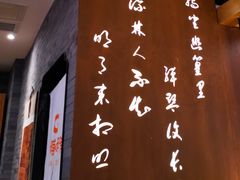 獨坐幽篁里
弹琴復长
深林人不知
明月来相照